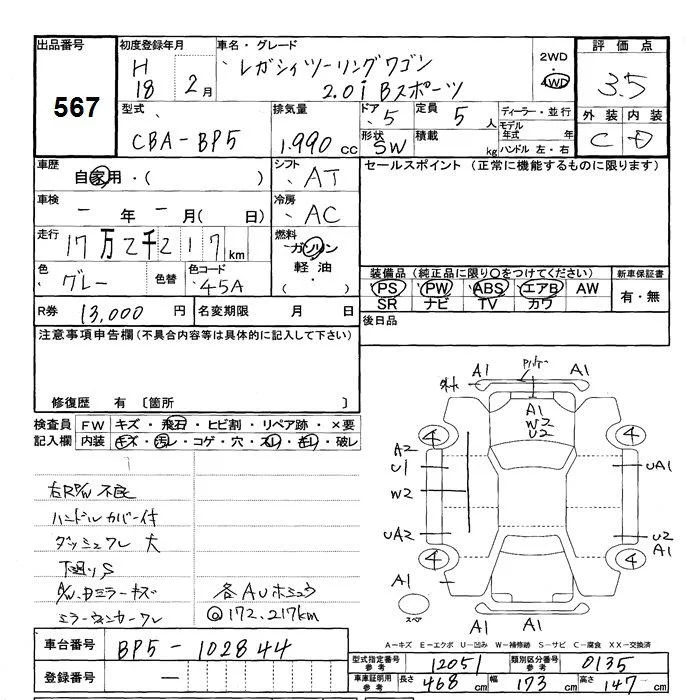 出品番号
567
初度登録年月
H 18 2月
車名・グレード
レガシィツーリングワゴン
2.0i Bスポーツ
2WD
4WD
評価点
3.5
外装 内装
C D
型式
CBA-BP5
排気量
1.990 cc
ドア 5
形状 SW
定員 5 人
積載 kg
ディーラー・並行
モデル年式 年
ハンドル 左・右
車歴
自家用・( )
シフト
AT
セールスポイント (正常に機能するものに限ります)
車検
ー 年 ー 月( 日)
冷房
AC
走行
17万2千217km
燃料
ガソリン
軽油
( )
色
グレー
色替
色コード
45A
装備品(純正品に限り○をつけてください)
PS PW ABS エアB AW
SR ナビ TV カワ
新車保証書
有・無
R券 13,000 円
名変期限 月 日
後日品
注意事項申告欄(不具合内容等は具体的に記入して下さい)
修復歴 有 〔箇所 〕
検査員記入欄
FW キズ・飛石・ヒビ割・リペア跡・×要
内装 キズ・汚レ・コゲ・穴・スレ・キレ・破レ
右RP/W不良
ハンドルカバー付
ダッシュワレ 大
下廻りS
A/W.ドミラーキズ
ミラーウィンカーワレ
各AUホシュウ
@172.217km
A1 A1
A1
W2
U2
4 4
A2
U1
W2
UA2
UA1
U2
A1
4 4
A1
スペア
A1 A1
A=キズ E=エクボ U=凹み W=補修跡 S=サビ C=腐食 XX=交換済
車台番号
BP5-102844
登録番号
ー
型式指定番号 参考 12051
類別区分番号 参考 0135
車庫証明用 参考 長さ 468 cm 幅 173 cm 高さ 147 cm